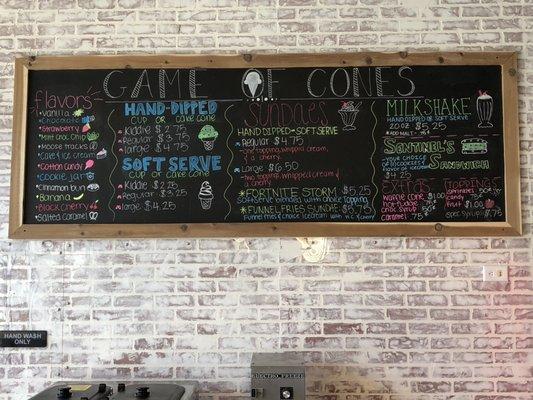 GAME OF CONES
flavors
Vanilla
Chocolate
Strawberry
Mint Choc Chip
Moose tracks
Cake & ice cream
Cotton candy
Cookie jar
Cinnamon bun
Banana
Black cherry
Salted Caramel
HAND-DIPPED
CUP or CAKE CONE
Kiddie $2.75
Regular $3.75
Large $4.75
SOFT SERVE
Cup or cake cone
Kiddie $2.25
Regular $3.25
Large $4.25
Sundaes
HAND DIPPED or SOFT SERVE
Regular $4.75
one topping, whipped cream,
& a cherry
Large $6.50
two toppings, whipped cream
& a cherry
FORTNITE STORM $5.25
Soft serve blended with choice topping
FUNNEL FRIES SUNDAE $5.75
Funnel fries & choice ice cream
MILKSHAKE
HAND DIPPED or SOFT SERVE
20 oz $5.25
ADD MALT
SENTINEL'S
SANDWICH
YOUR CHOICE
of cookies &
flavor of
Extras
Waffle cone $1.00
hot fudge
choc syrup
caramel
TOPPINGS
sprinkles
candy
fruit
$1.00
HAND WASH
ONLY
ELECTRO FREEZE